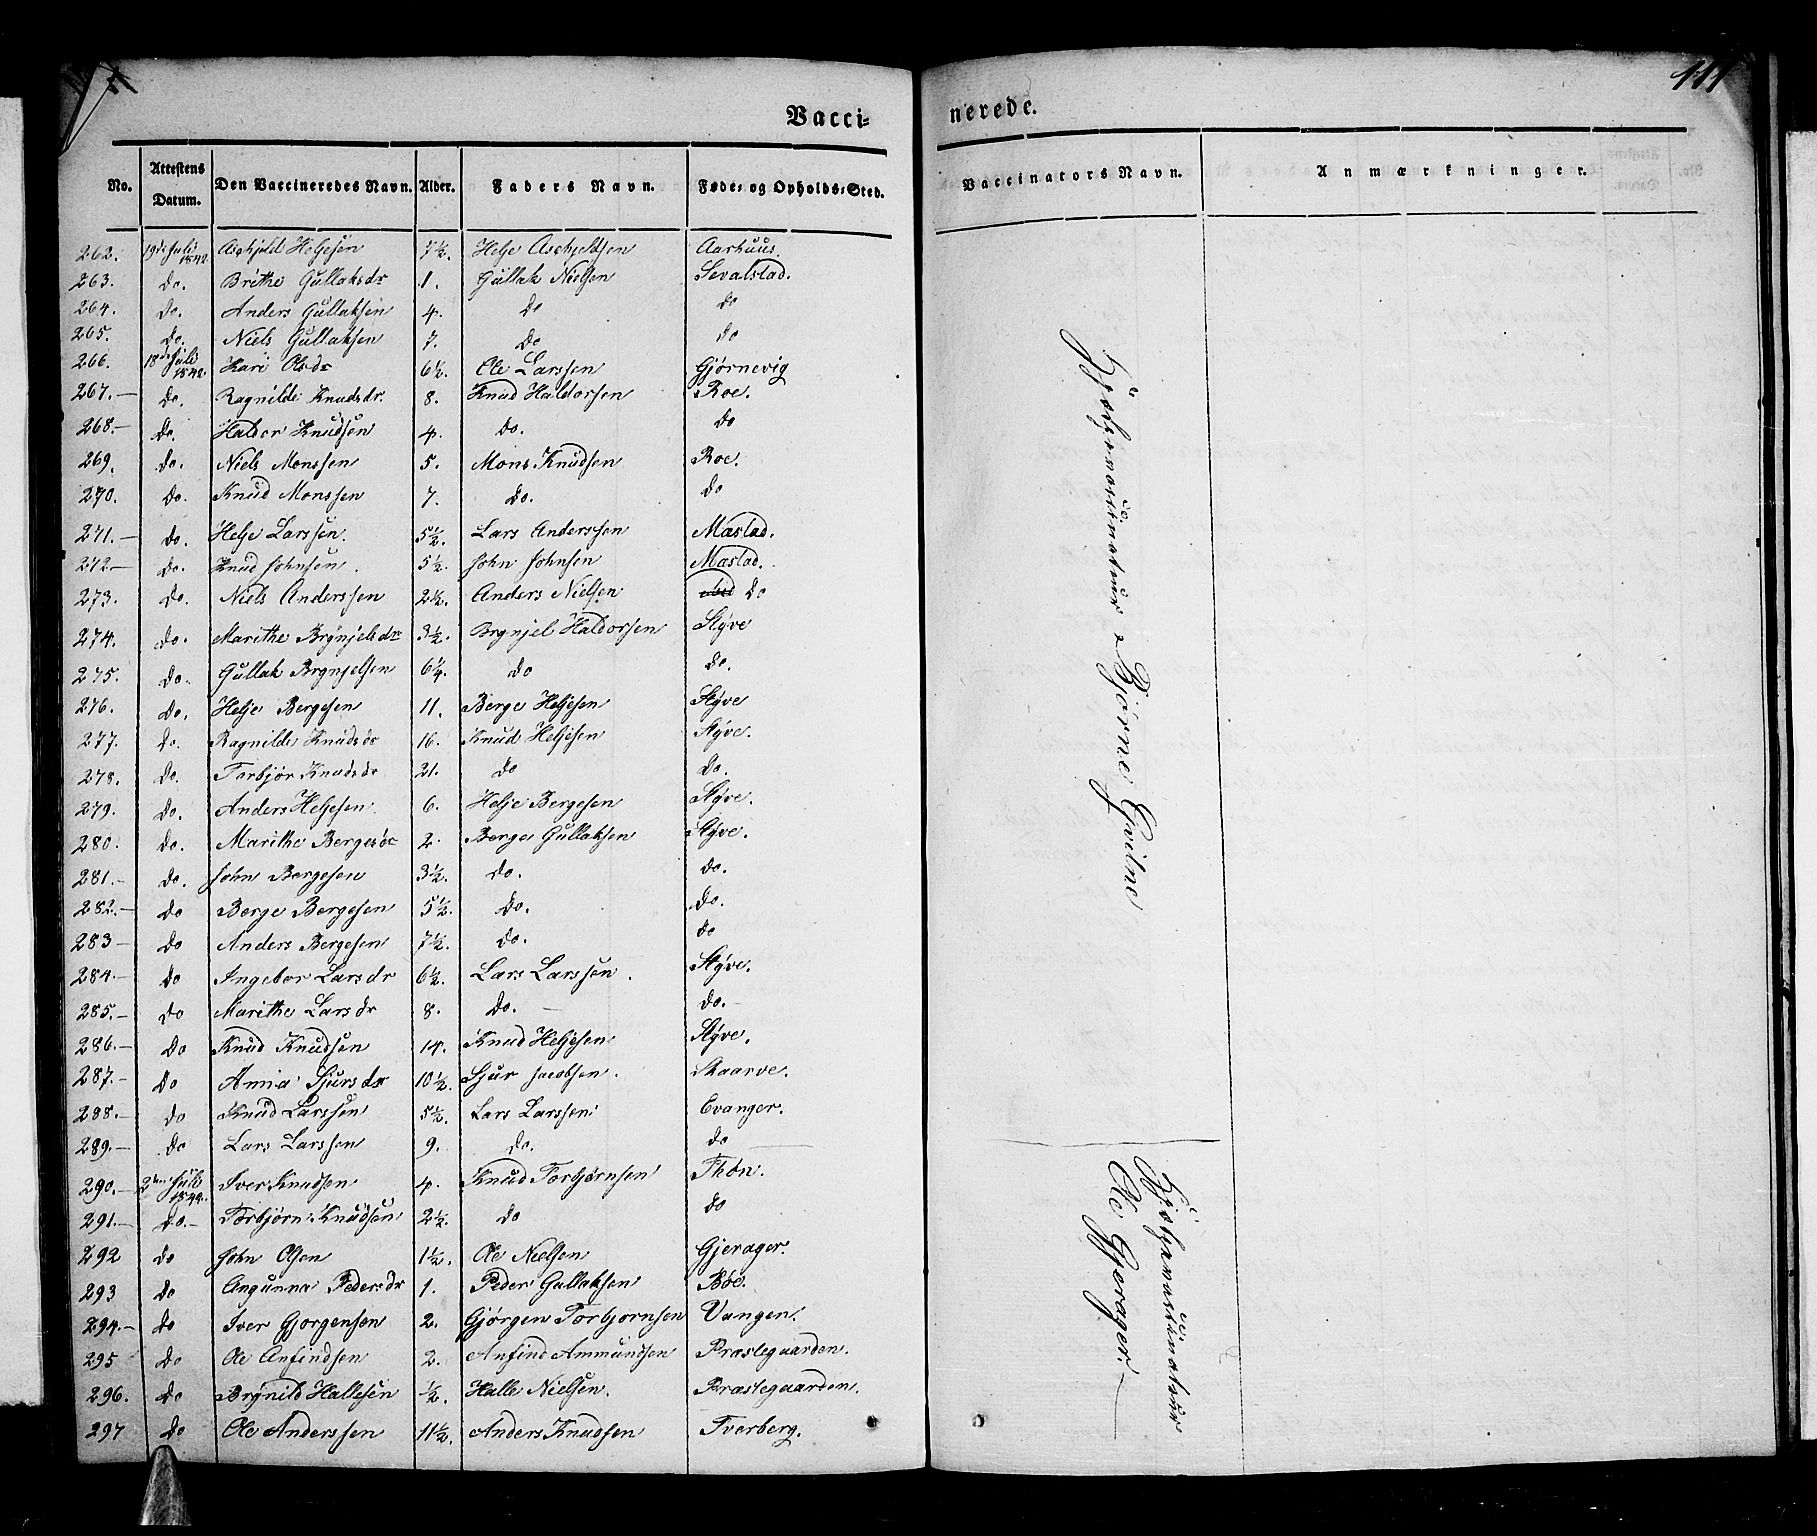 Vacci-
nerede.
111
No. Attestens Datum. Den Vaccineredes Navn. Alder. Faders Navn. Føde- og Opholds-Sted. Vaccinators Navn. Anmærkninger.
262. 19de Juli 1842. Aschjeld Heljesen 7½. Helje Aschjeldsen Aarhuus.
263. do. Brithe Gullaksdr 1. Gullak Nielsen Sevalstad.
264. do. Anders Gullaksen 4. do do
265. do. Niels Gullaksen 7. do do
266. 18de Juli 1842. Kari Olsdr 6½. Ole Larssen Gjørnevig
267.- do. Ragnilde Knudsdr. 8. Knud Haldorsen Roe.
268.- do. Haldor Knudsen 4. do. do
269. do. Niels Monssen 5. Mons Knudsen Roe.
270. do. Knud Monssen 7. do. do
271.- do. Helje Larssen. 5½. Lars Anderssen Mæstad.
272- do. Knud Johnsen. 5½. John Johnsen Mæstad.
273. do. Niels Anderssen 2½. Anders Nielsen do
274. do. Marithe Brynjelsdr 3½. Brynjel Haldorsen Styve
275. do. Gullak Brynjelsen 6¼. do do.
276. do. Helje Bergesen 11. Berge Heljesen Styve
277. do. Ragnilde Knudsdr 16. Knud Heljesen Styve.
278. do. Torbjør Knudsdr 21. do do.
279. do. Anders Heljesen. 6. Helje Bergesen Styve.
280. do. Marithe Bergesdr 2. Berge Gullaksen Styve.
281.- do. John Bergesen 3½. do. do.
282.- do Berge Bergesen 5½. do. do.
283- do Anders Bergesen 7½. do. do
284.- do Ingebor Larsdr 6½. Lars Larssen. Styve.
285.- do Marithe Larsdr 8. do.- do.-
286.- do Knud Knudsen 14. Knud Heljesen Styve.
287.- do Anna Sjursdr 10½. Sjur Jacobsen. Skaarve.
288.- do Knud Larssen 5½. Lars Larssen Evanger.
289.- do Lars Larssen 9. do. do
290.- 2den Juli 1842. Iver Knudsen 4. Knud Torbjørnsen Thøn.
291.- do.- Torbjørn Knudsen 2½. do do
292 do John Olsen 1½. Ole Nielsen Gjerager.
293 do Angunna Pedersdr 1. Peder Gullaksen Bøe.
294.- do Iver Gjørgensen 2. Gjørgen Torbjørnsen Vangen.
295 do Ole Anfindsen 2. Anfind Ammundsen Præstegaarden.
296. do Brynild Hallesen ½. Halle Nielsen. Præstegaarden.
297 do Ole Anderssen 11½. Anders Knudsen Tverberg.
Hjelpevaccinateur Bjørne Gilne
Hjelpevaccinateur
Ole Gjerager.-